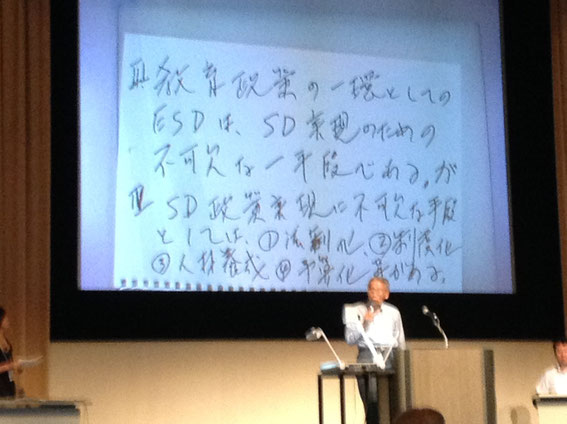 Ⅲ 教育政策の一環としての
ESDは、SD実現のための
不可欠な一手段である。が
Ⅳ SD政策実現に不可欠な手段
としては、①法制化、②制度化
③人材養成 ④予算化 等がある。